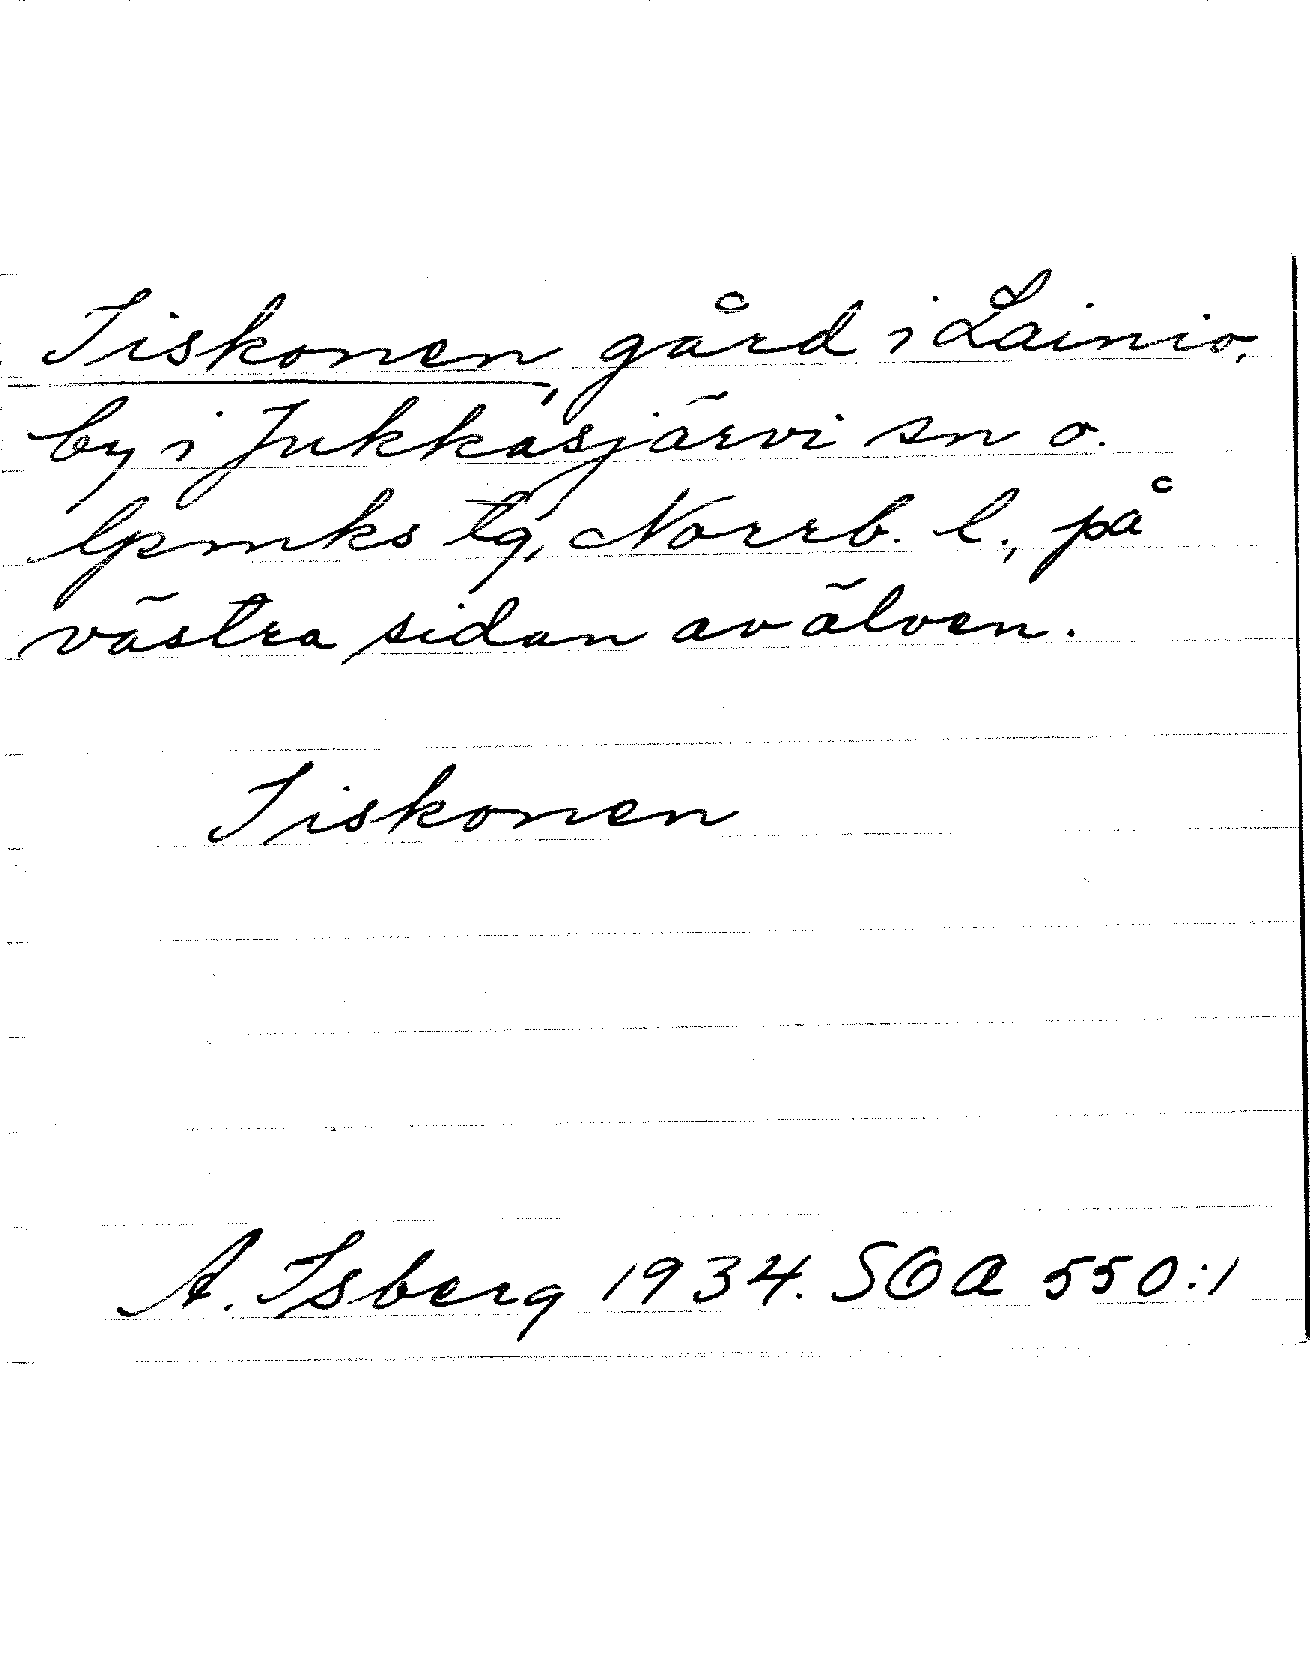 Iiskonen, gård i Lainio,
by i Jukkasjärvi sn o.
lpmks tg, Norrb. l., på
västra sidan av älven.
Iiskonen
A. Isberg 1934. SOA 550:1